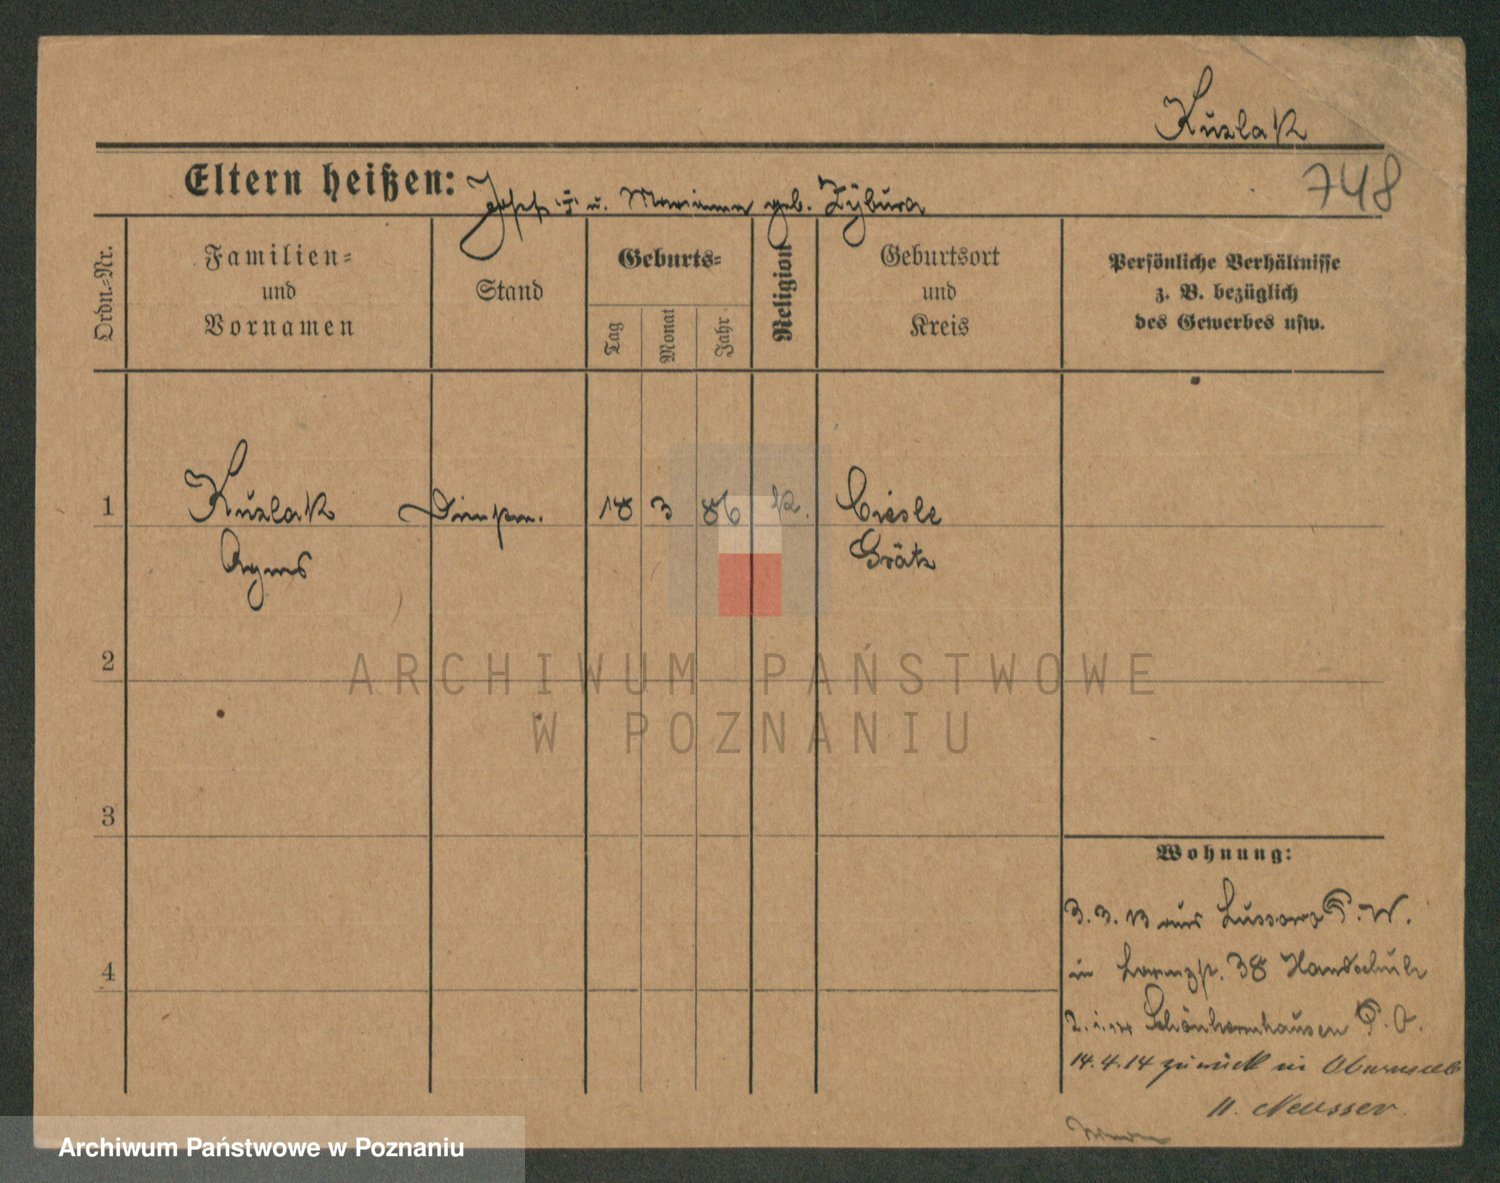 Kuzlak
748
Eltern heißen: Josef u. Marianna geb. Zybura
Ordn.-Nr.
Familien-
und
Vornamen
Stand
Geburts-
Tag
Monat
Jahr
Religion
Geburtsort
und
Kreis
Persönliche Verhältnisse
z. B. bezüglich
des Gewerbes usw.
1
Kuzlak
Agnes
18 3 86 k.
Ciesle
Grätz
2
3
4
Wohnung:
3. 3. 13 aus
in 38
Schönherrnhausen P. O.
14. 4. 14 zurück in
ARCHIWUM PAŃSTWOWE
W POZNANIU
Archiwum Państwowe w Poznaniu